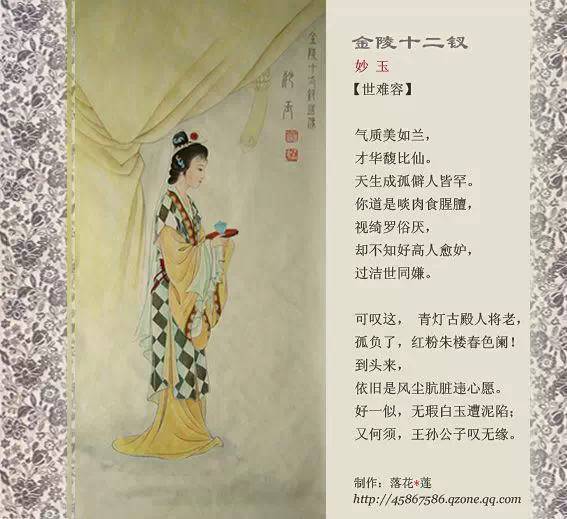 金陵十二钗
妙 玉
【世难容】
气质美如兰，
才华馥比仙。
天生成孤僻人皆罕。
你道是啖肉食腥膻，
视绮罗俗厌，
却不知好高人愈妒，
过洁世同嫌。
可叹这， 青灯古殿人将老，
孤负了，红粉朱楼春色阑！
到头来，
依旧是风尘肮脏违心愿。
好一似，无瑕白玉遭泥陷；
又何须，王孙公子叹无缘。
制作：落花*莲
http://45867586.qzone.qq.com